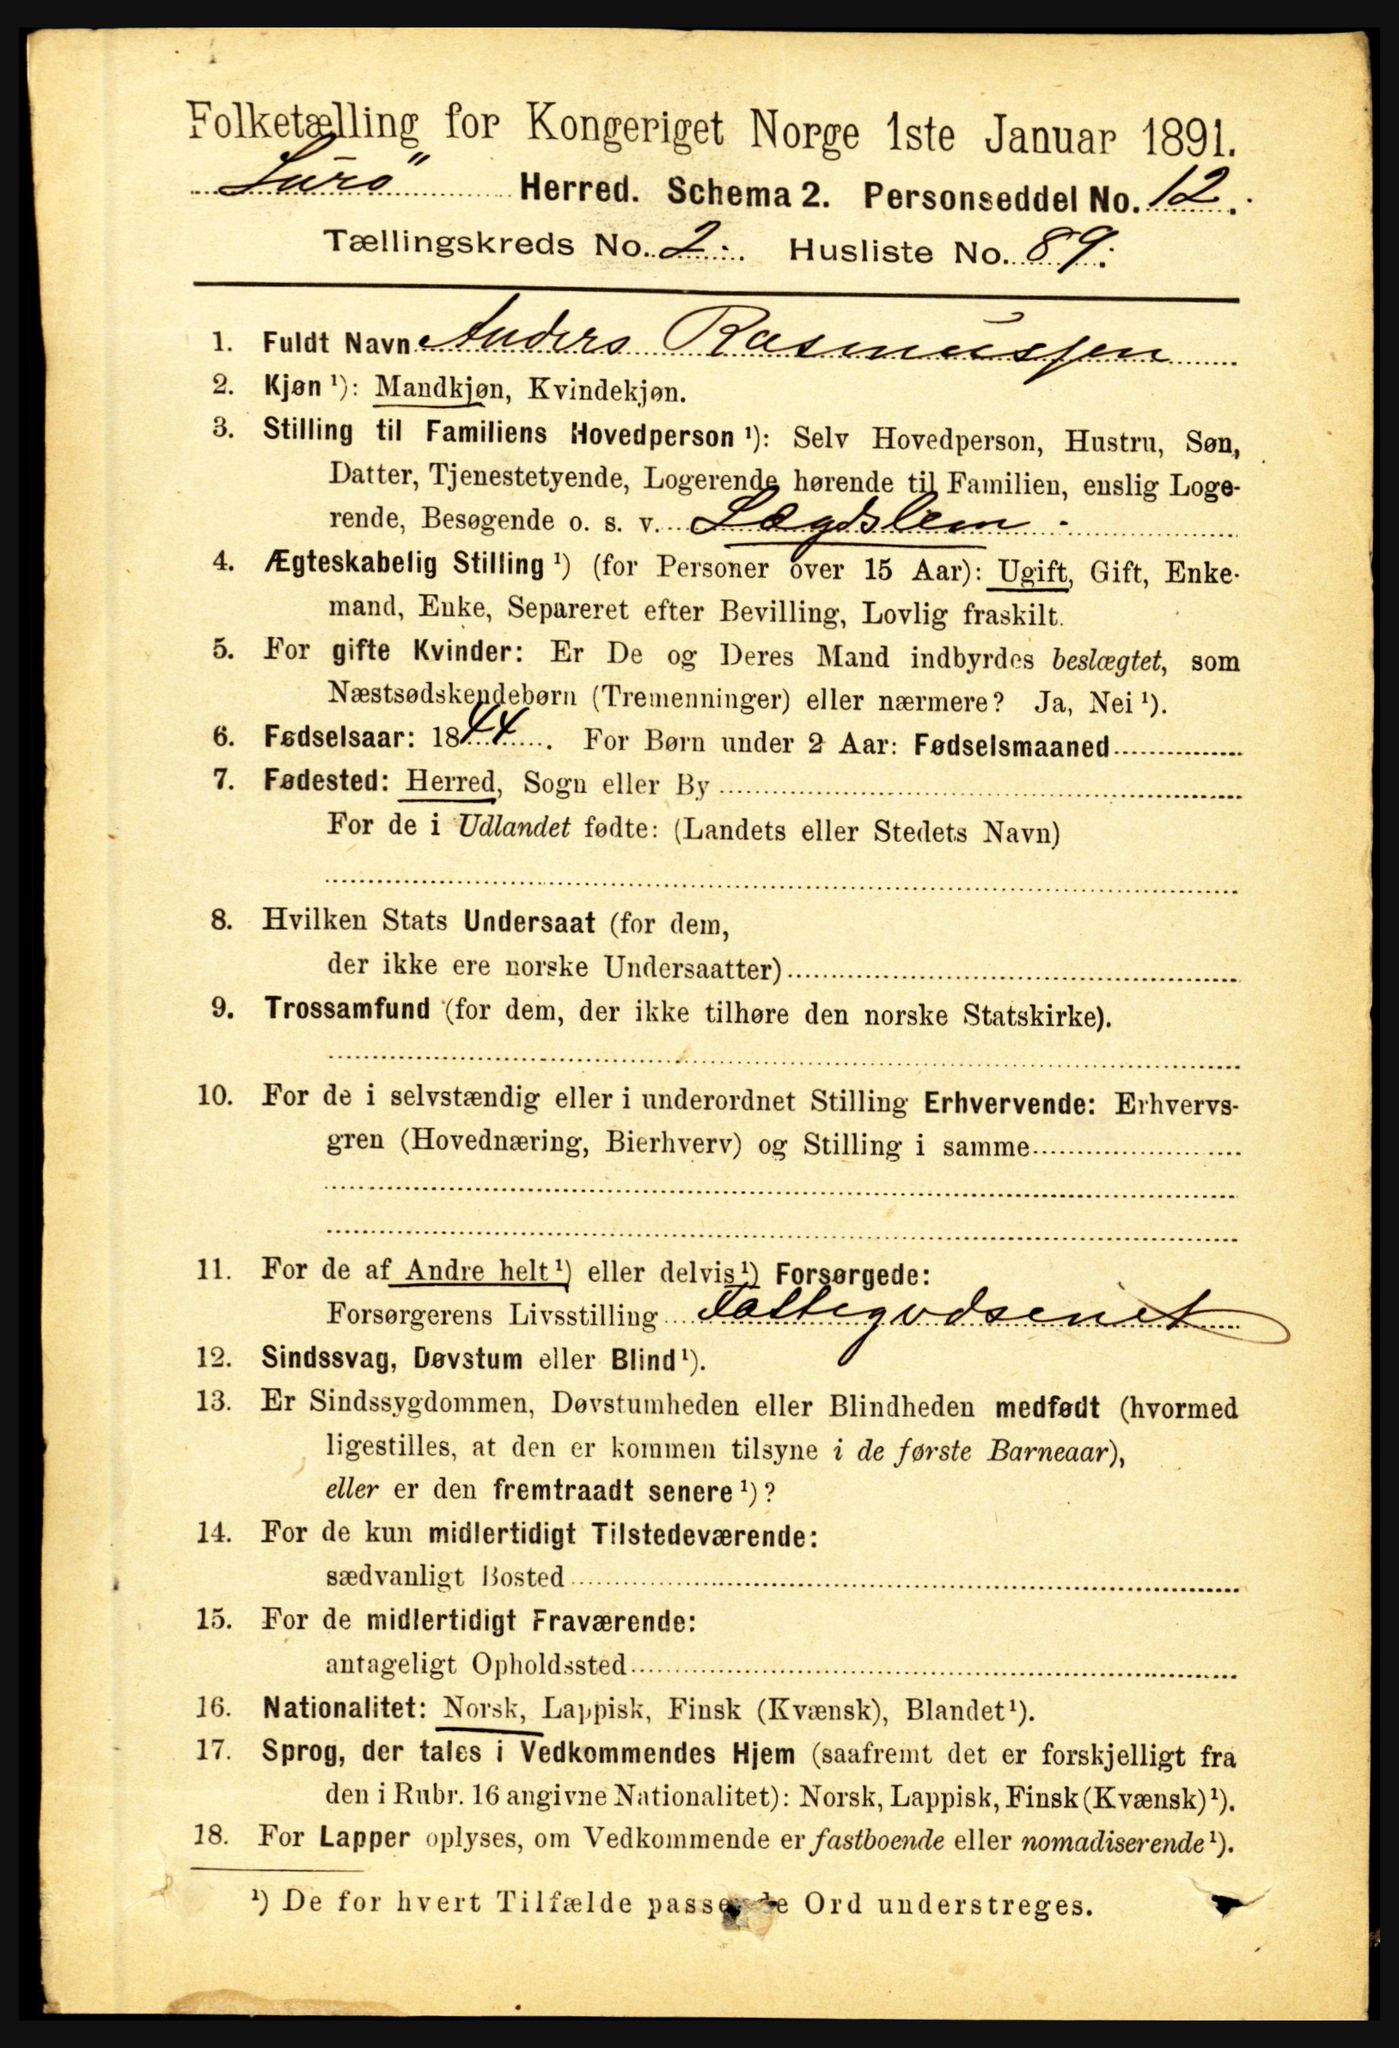 Folketælling for Kongeriget Norge 1ste Januar 1891.
Lurö Herred. Schema 2. Personseddel No. 12.
Tællingskreds No. 2. Husliste No. 89.
1. Fuldt Navn Anders Rasmussen
2. Kjøn ¹): Mandkjøn, Kvindekjøn.
3. Stilling til Familiens Hovedperson ¹): Selv Hovedperson, Hustru, Søn,
Datter, Tjenestetyende, Logerende hørende til Familien, enslig Loge-
rende, Besøgende o. s. v. Lægdslem.
4. Ægteskabelig Stilling ¹) (for Personer over 15 Aar): Ugift, Gift, Enke-
mand, Enke, Separeret efter Bevilling, Lovlig fraskilt.
5. For gifte Kvinder: Er De og Deres Mand indbyrdes beslægtet, som
Næstsødskendebørn (Tremenninger) eller nærmere? Ja, Nei ¹).
6. Fødselsaar: 1844. For Børn under 2 Aar: Fødselsmaaned
7. Fødested: Herred, Sogn eller By
For de i Udlandet fødte: (Landets eller Stedets Navn)
8. Hvilken Stats Undersaat (for dem,
der ikke ere norske Undersaatter)
9. Trossamfund (for dem, der ikke tilhøre den norske Statskirke).
10. For de i selvstændig eller i underordnet Stilling Erhvervende: Erhvervs-
gren (Hovednæring, Bierhverv) og Stilling i samme
11. For de af Andre helt ¹) eller delvis ¹) Forsørgede:
Forsørgerens Livsstilling Fattigvdsenet
12. Sindssvag, Døvstum eller Blind ¹).
13. Er Sindssygdommen, Døvstumheden eller Blindheden medfødt (hvormed
ligestilles, at den er kommen tilsyne i de første Barneaar),
eller er den fremtraadt senere ¹)?
14. For de kun midlertidigt Tilstedeværende:
sædvanligt Bosted
15. For de midlertidigt Fraværende:
antageligt Opholdssted
16. Nationalitet: Norsk, Lappisk, Finsk (Kvænsk), Blandet ¹).
17. Sprog, der tales i Vedkommendes Hjem (saafremt det er forskjelligt fra
den i Rubr. 16 angivne Nationalitet): Norsk, Lappisk, Finsk (Kvænsk) ¹).
18. For Lapper oplyses, om Vedkommende er fastboende eller nomadiserende ¹).
¹) De for hvert Tilfælde passende Ord understreges.